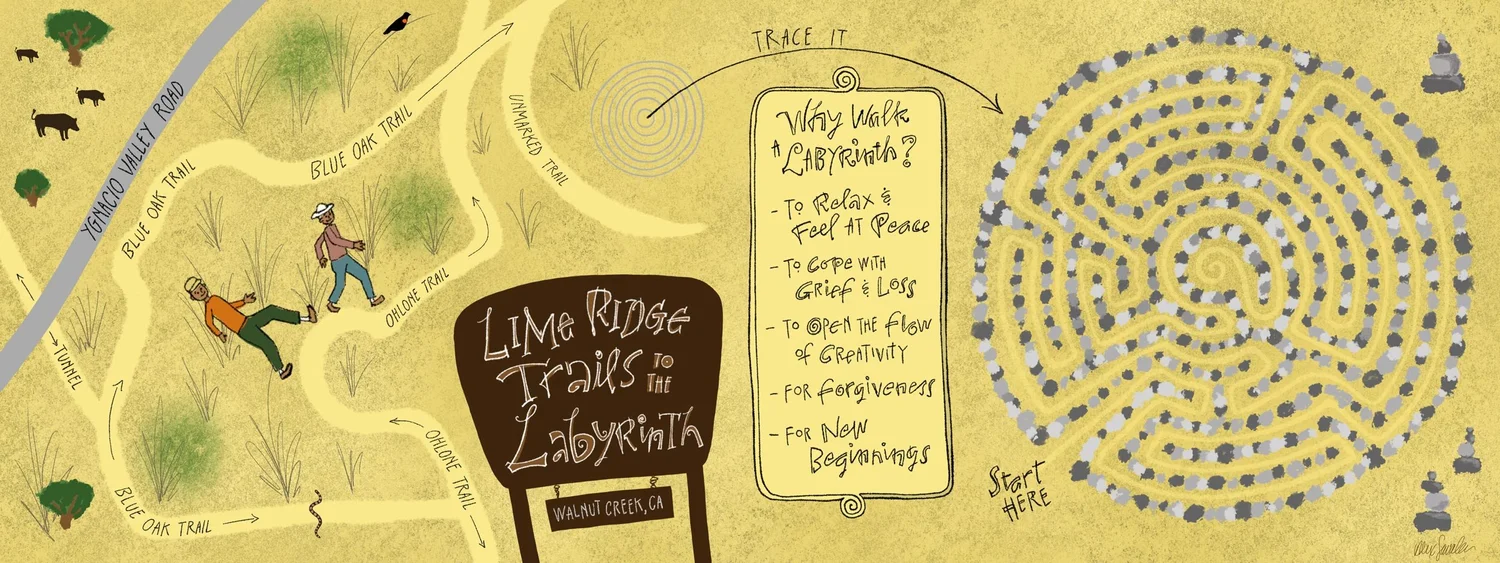 YGNACIO VALLEY ROAD
BLUE OAK TRAIL
BLUE OAK TRAIL
UNMARKED TRAIL
OHLONE TRAIL
TUNNEL
BLUE OAK TRAIL
OHLONE TRAIL
LIME RIDGE
TraiLs TO
THE
LabyRinTh
WALNUT CREEK, CA
TRACE IT
Why Walk
A LAByRinth?
- To Relax &
Feel AT Peace
- To Cope WITH
GRieF & Loss
- TO OPEN THE Flow
OF CREATIVITY
- FOR Forgiveness
- FOR New
Beginnings
Start
HERE